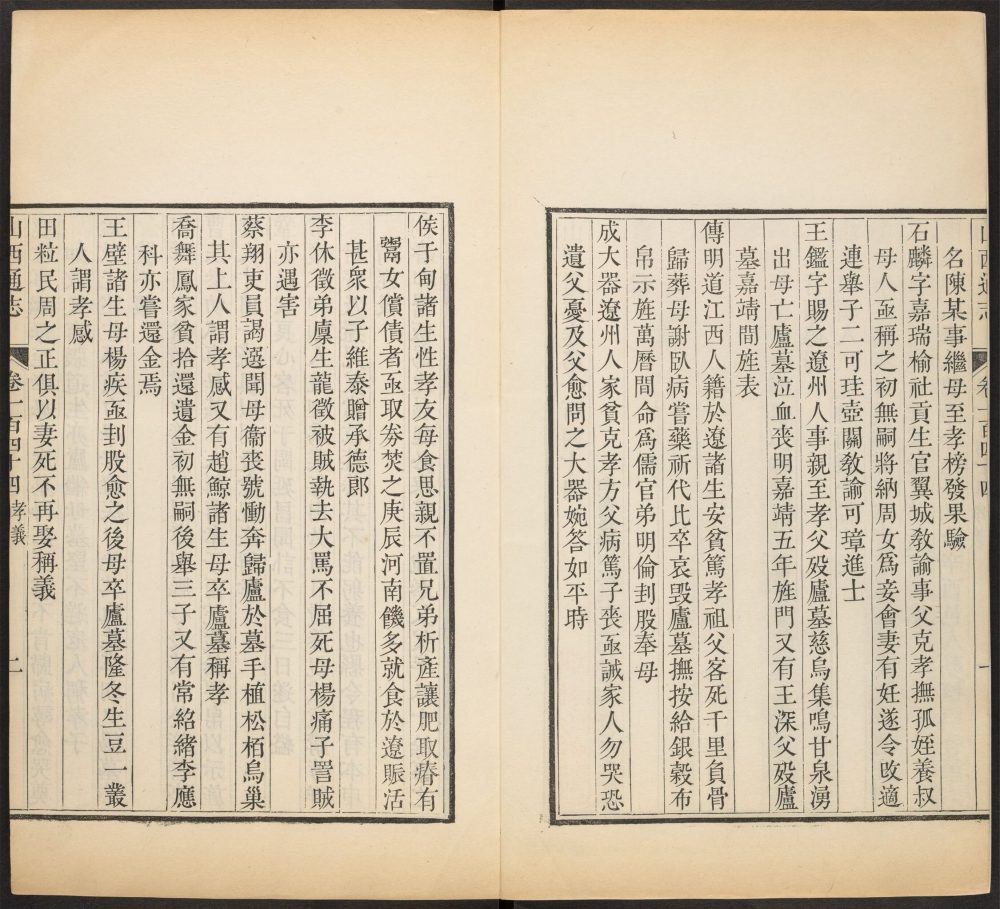 山西通志 卷一百四十四 一
名陳某事繼母至孝榜發果驗
石麟字嘉瑞榆社貢生官翼城敎諭事父克孝撫孤姪養叔
母人亟稱之初無嗣將納周女爲妾會妻有妊遂令改適
連舉子二可珪壺關敎諭可璋進士
王鑑字賜之遼州人事親至孝父歿廬墓慈烏集鳴甘泉湧
出母亡廬墓泣血喪明嘉靖五年旌門又有王深父歿廬
墓嘉靖間旌表
傅明道江西人籍於遼諸生安貧篤孝祖父客死千里負骨
歸葬母謝臥病嘗藥祈代比卒哀毀廬墓撫按給銀穀布
帛示旌萬曆間命爲儒官弟明倫刲股奉母
成大器遼州人家貧克孝方父病篤子喪亟誡家人勿哭恐
遺父憂及父愈問之大器婉答如平時
侯于甸諸生性孝友每食思親不置兄弟析產讓肥取瘠有
鬻女償債者亟取券焚之庚辰河南饑多就食於遼賑活
甚衆以子維泰贈承德郎
李休徵弟廩生龍徵被賊執去大罵不屈死母楊痛子詈賊
亦遇害
蔡翔吏員謁選聞母衞喪號慟奔歸廬於墓手植松栢烏巢
其上人謂孝感又有趙鯨諸生母卒廬墓稱孝
喬舞鳳家貧拾還遺金初無嗣後舉三子又有常紹緒李應
科亦嘗還金焉
王璧諸生母楊疾亟刲股愈之後母卒廬墓隆冬生豆一叢
人謂孝感
田粒民周之正俱以妻死不再娶稱義
山西通志 卷一百四十四 孝義 二